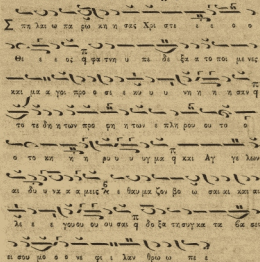 Σ πη λαι ω πα ρῳ κη η σας Χρι στε ε ε ο ο
Θε ε ος φα τνη υ πε δε ξα α το ποι με νες
και μα γοι προ σε ε κυ υ νη η η η σαν
το τε δη η των προ φη η των ε πλη ρου ου το ο
ο το κη η η ρυ υ υγ μα και Αγ γε λων
αι δυ υ να α α μεις ε ε θαυ μα ζον βο ω σαι και και αι
λε ε ε γου ου ου ου σαι δο ξα τη συγ κα τα βα σει
ει σου μο ο ο νε φι ι λαν θρω ω πε ε